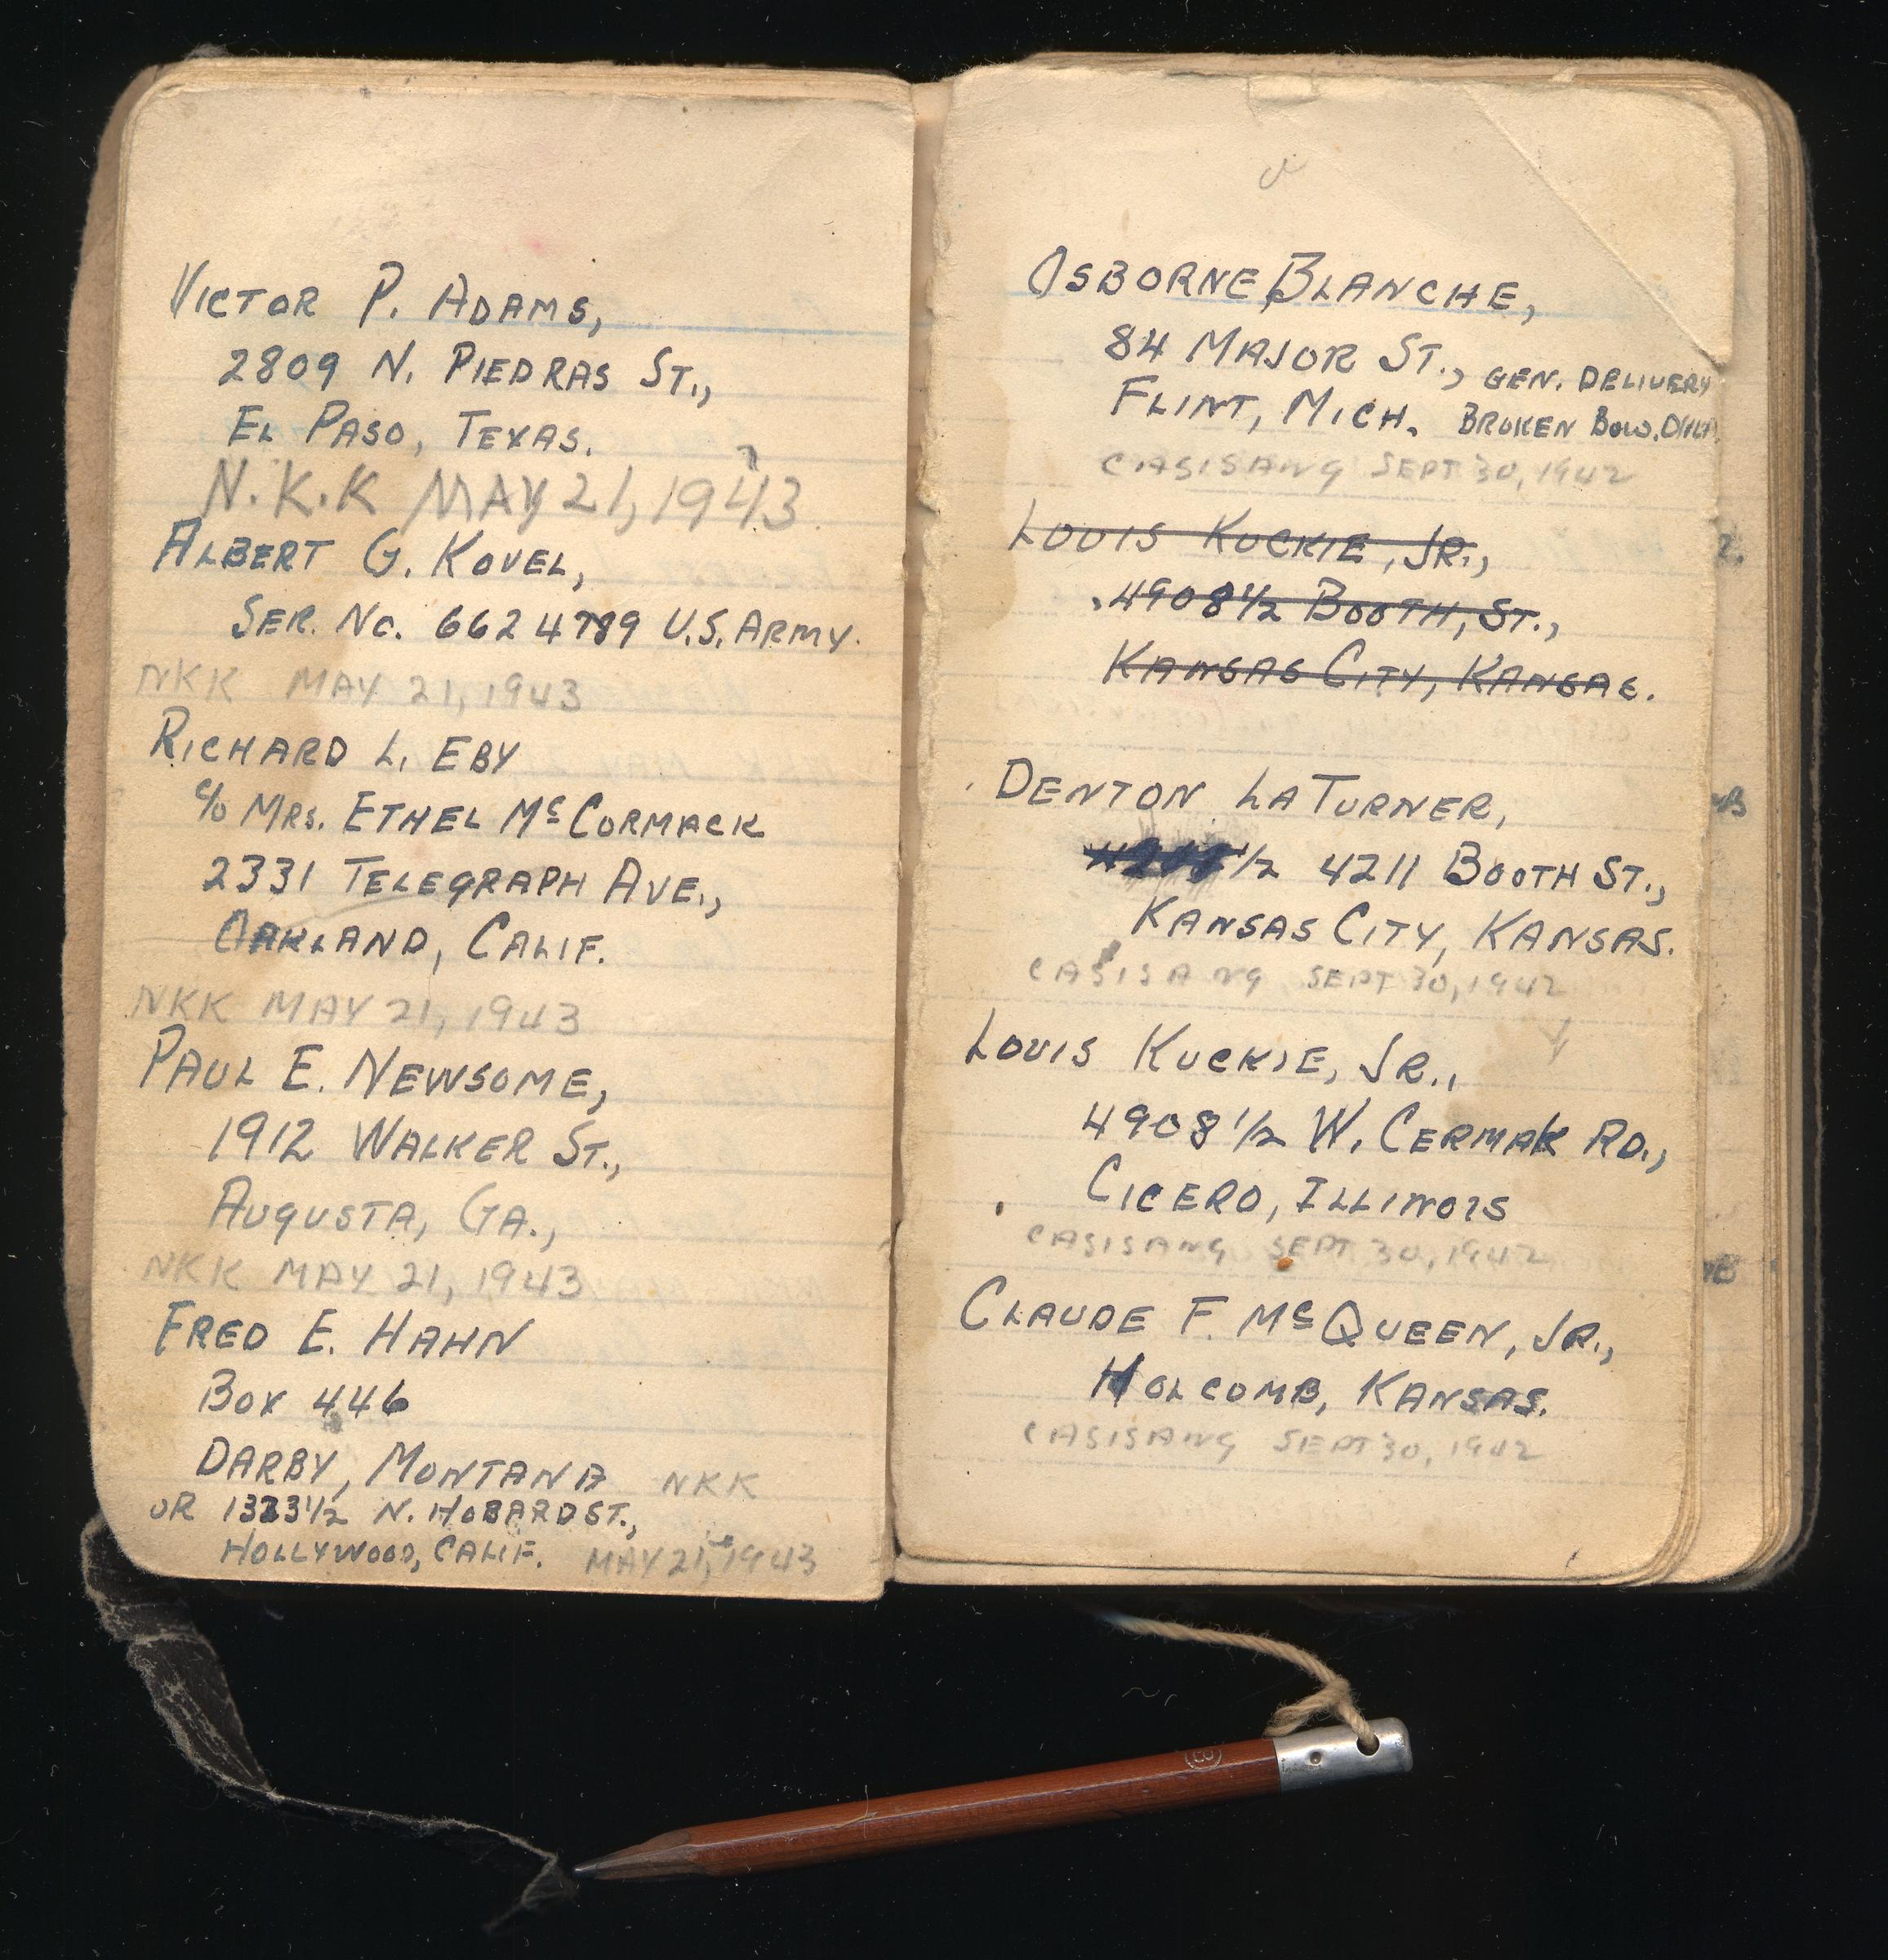 VICTOR P. ADAMS,
2809 N. PIEDRAS ST.,
EL PASO, TEXAS.
N.K.K MAY 21, 1943
ALBERT G. KOVEL,
SER. NO. 6624789 U.S. ARMY.
NKK MAY 21, 1943
RICHARD L. EBY
c/o MRS. ETHEL McCORMACK
2331 TELEGRAPH AVE.,
OAKLAND, CALIF.
NKK MAY 21, 1943
PAUL E. NEWSOME,
1912 WALKER ST.,
AUGUSTA, GA.,
NKK MAY 21, 1943
FRED E. HAHN
BOX 446
DARBY, MONTANA NKK
OR 1323½ N. HOBARD ST.,
HOLLYWOOD, CALIF. MAY 21, 1943
OSBORNE, BLANCHE,
84 MAJOR ST., GEN. DELIVERY
FLINT, MICH. BROKEN BOW.
CASISANG SEPT 30, 1942
LOUIS KUCKIE, JR.,
4908½ BOOTH, ST.,
KANSAS CITY, KANSAS.
DENTON LATURNER,
½ 4211 BOOTH ST.,
KANSAS CITY, KANSAS.
CASISANG SEPT 30, 1942
LOUIS KUCKIE, JR.,
4908½ W. CERMAK RD.,
CICERO, ILLINOIS
CASISANG SEPT 30, 1942
CLAUDE F. McQUEEN, JR.,
HOLCOMB, KANSAS.
CASISANG SEPT 30, 1942